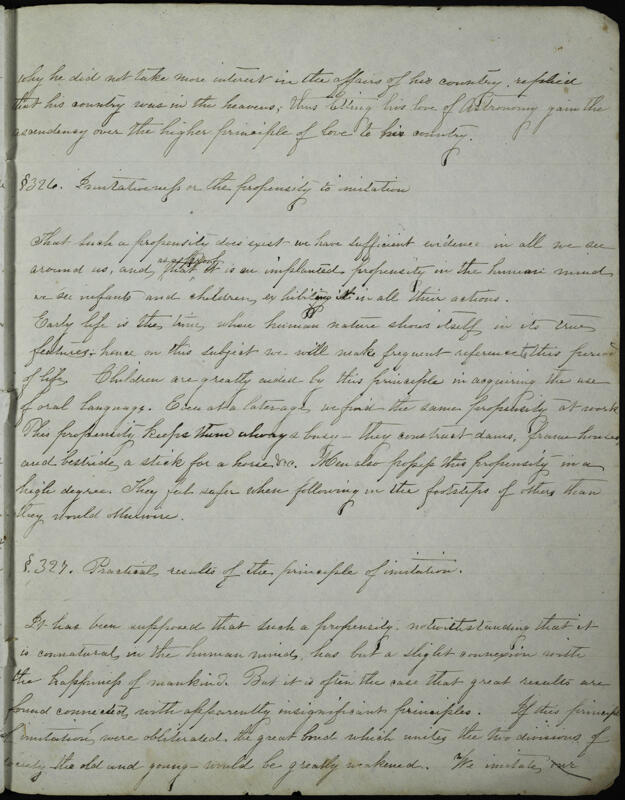 why he did not take more interest in the affairs of his country replied
that his country was in the heavens; thus letting his love of Astronomy gain the
ascendency over the higher principle of love to his country.
§326. Imitativeness or the propensity to imitation
That such a propensity does exist we have sufficient evidence in all we see
around us, and, that it is an implanted propensity in the human mind
we see infants and children exhibiting it in all their actions.
Early life is the time when human nature shows itself in its true
features; hence on this subject we will make frequent reference to this period
of life. Children are greatly aided by this principle in acquiring the use
of oral language. Even at a later age we find the same propensity at work
This propensity keeps them always busy – they construct dams, frame houses
and bestride a stick for a horse, &c. Men also possess this propensity in a
high degree. They feel safer when following in the footsteps of others than
they would otherwise.
§.327. Practical results of the principle of imitation.
It has been supposed that such a propensity notwithstanding that it
is connatural in the human mind, has but a slight connexion with
the happiness of mankind. But it is often the case that great results are
found connected with apparently insignificant principles. If this principle
of imitation were obliterated the great bond which unites the two divisions of
society – the old and young – would be greatly weakened. We imitate our